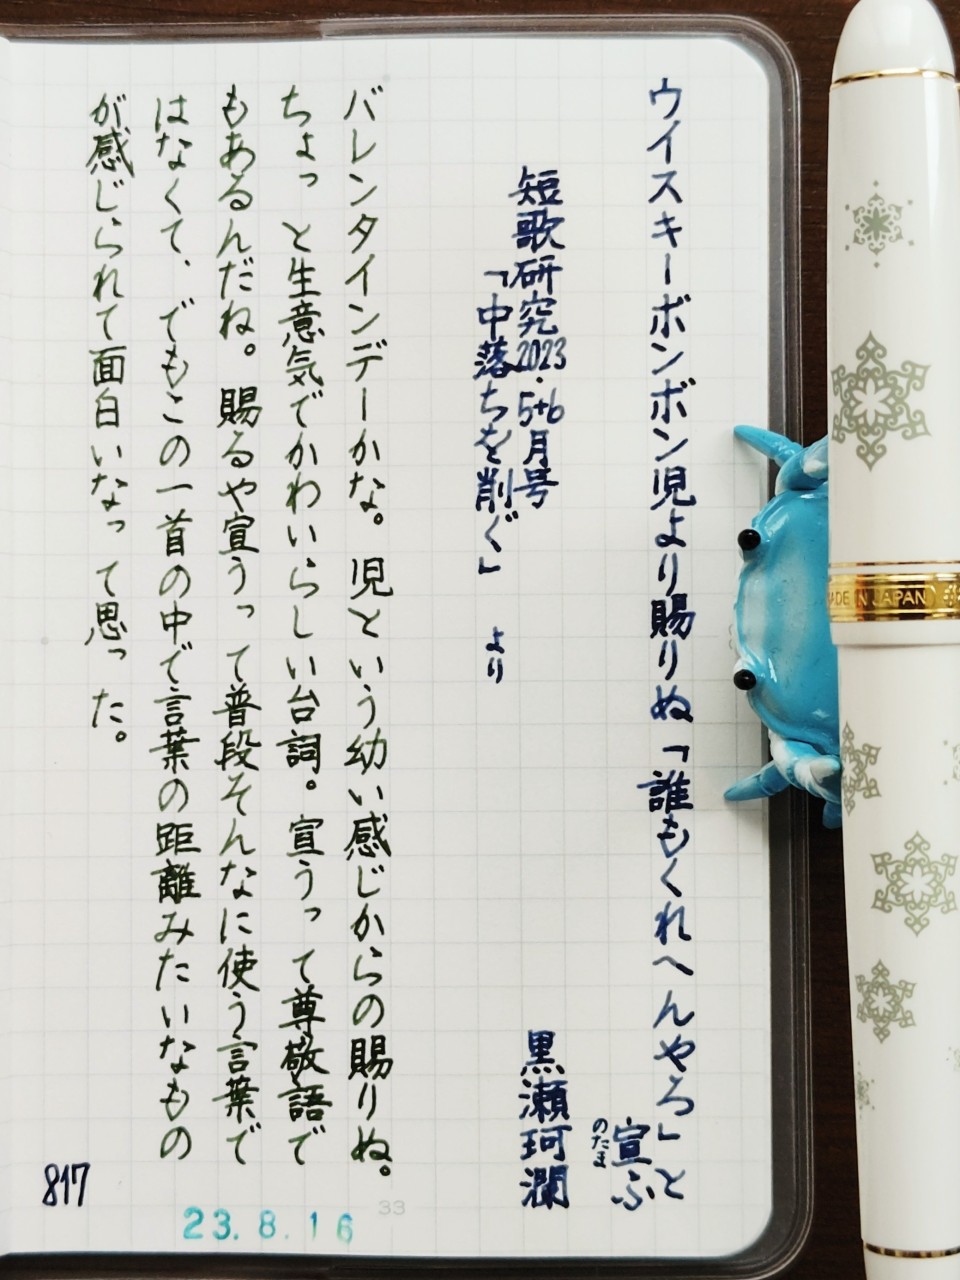 ウイスキーボンボン児より賜りぬ「誰もくれへんやろ」と
宣ふ
のたま
短歌研究2023.5+6月号
「中落ちを削ぐ」 より
黒瀬珂瀾
バレンタインデーかな。児という幼い感じからの賜りぬ。
ちょっと生意気でかわいらしい台詞。宣うって尊敬語で
もあるんだね。賜るや宣うって普段そんなに使う言葉で
はなくて、でもこの一首の中で言葉の距離みたいなもの
が感じられて面白いなって思った。
817
23.8.16
33
MADE IN JAPAN